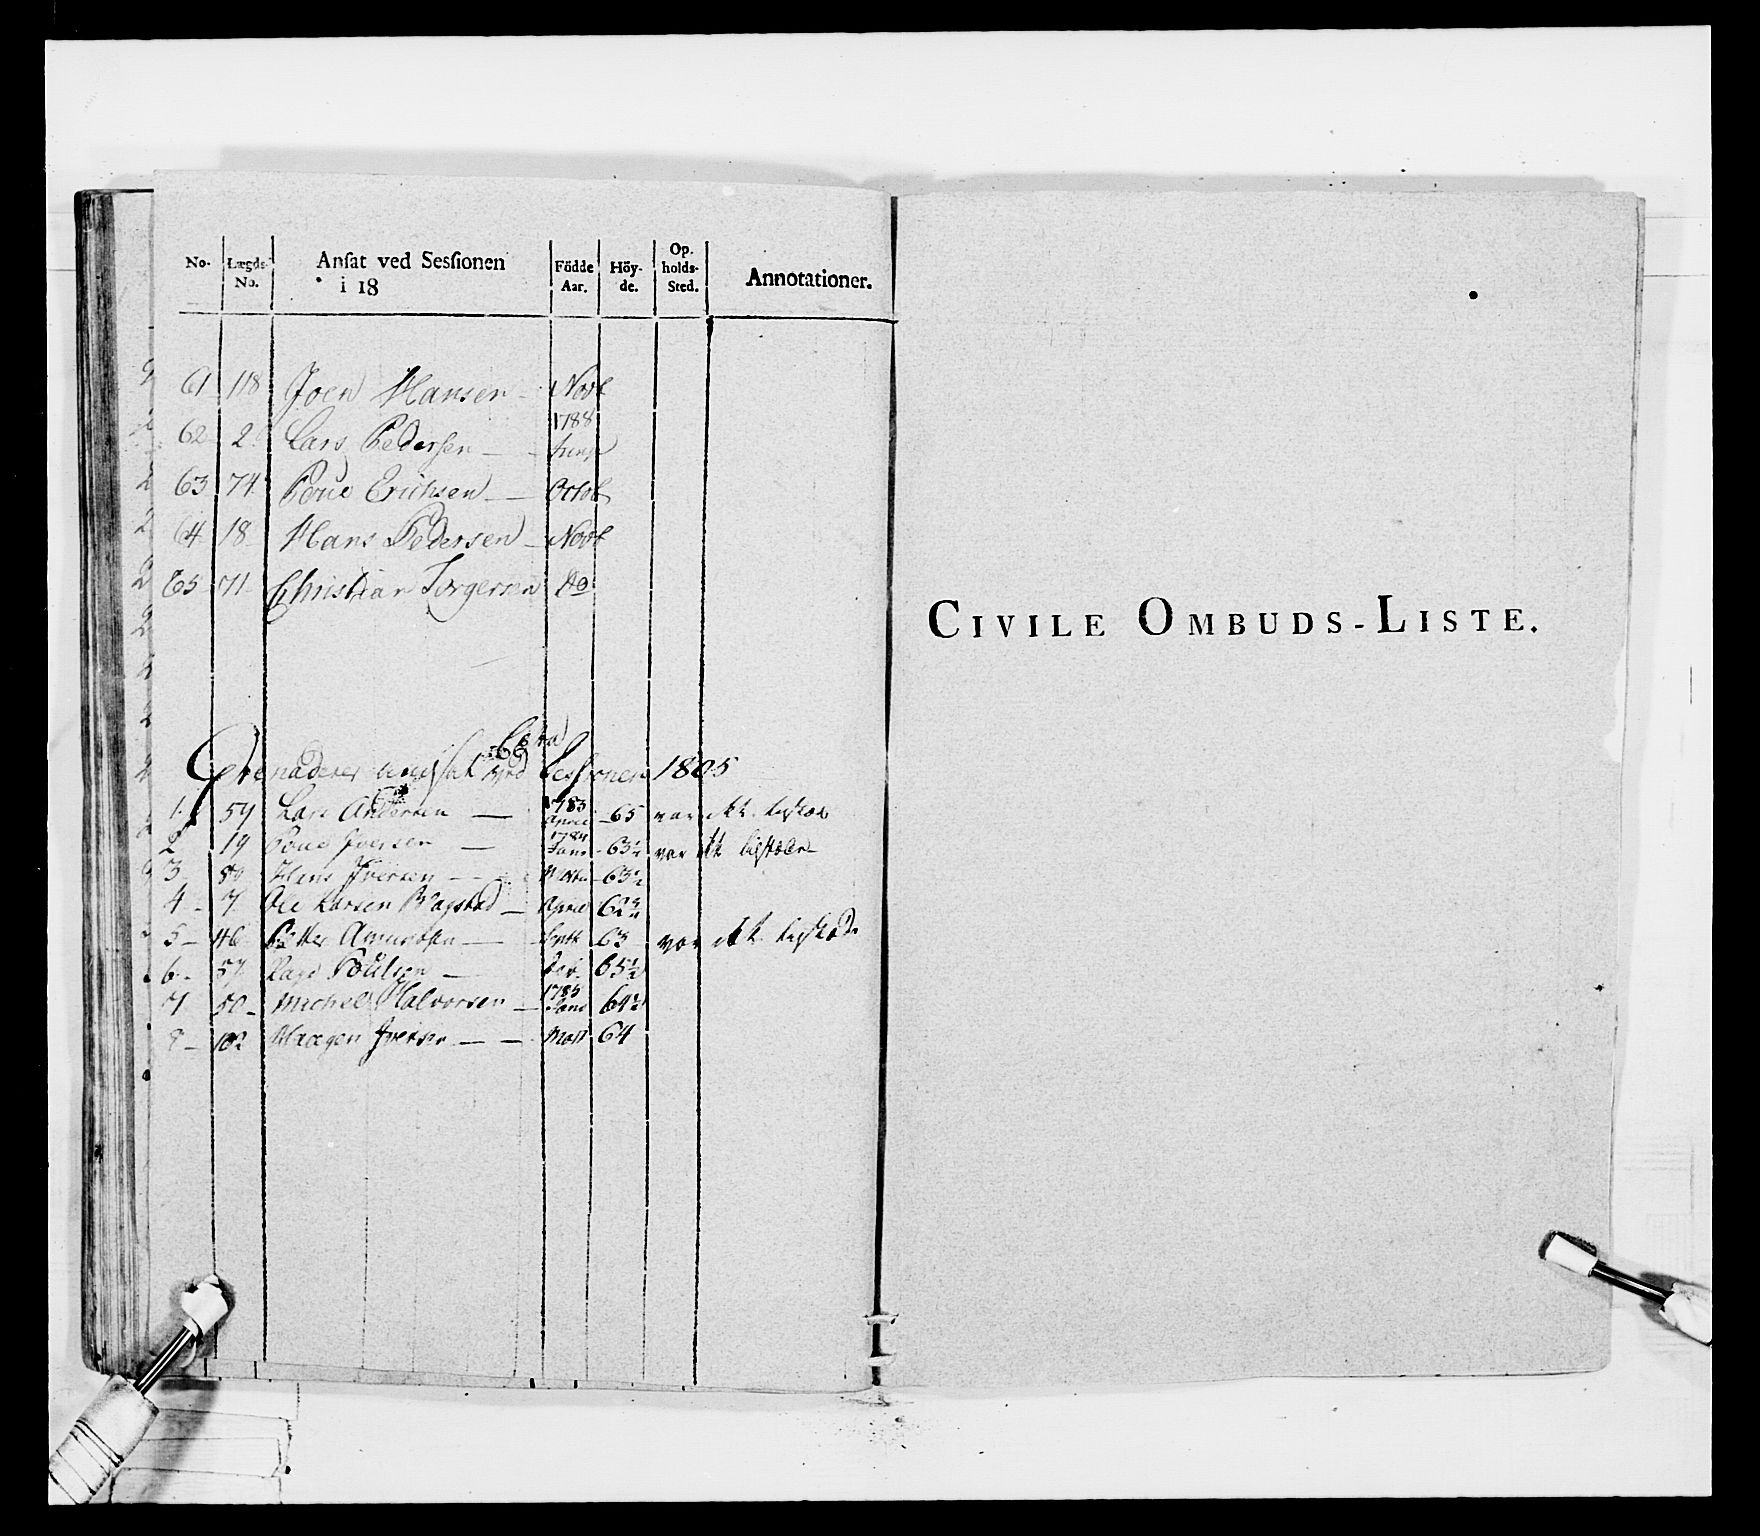 No. Lægds- No. Ansat ved Sessionen i 18 Födde Aar. Höy- de. Op- holds- Sted. Annotationer.
61 118 Joen Hansen - Novb
62 2 Lars Pedersen - 1788 Juny
63 74 Poue Erichsen - Octob
64 18 Hans Pedersen - Novb
65 71 Christian Torgersen Do
Extra
Grenaderer ved Sessionen 1805
1. 59 Lars Andersen - 1783 April - 65 var ikke
2 19 Poue Iversen - 1784 Janv - 63½ var ikke
3 Hans Iversen - - 63½
4 - 7 Ole Larsen - April 62¾
5 - 46 Petter - Sept 63 var ikke
6 - 57 Poulsen - 65½
7 50 - Michel Halvorsen - 1785 Janv 64½
8 - 102 Iversen - - Mart 64
CIVILE OMBUDS-LISTE.